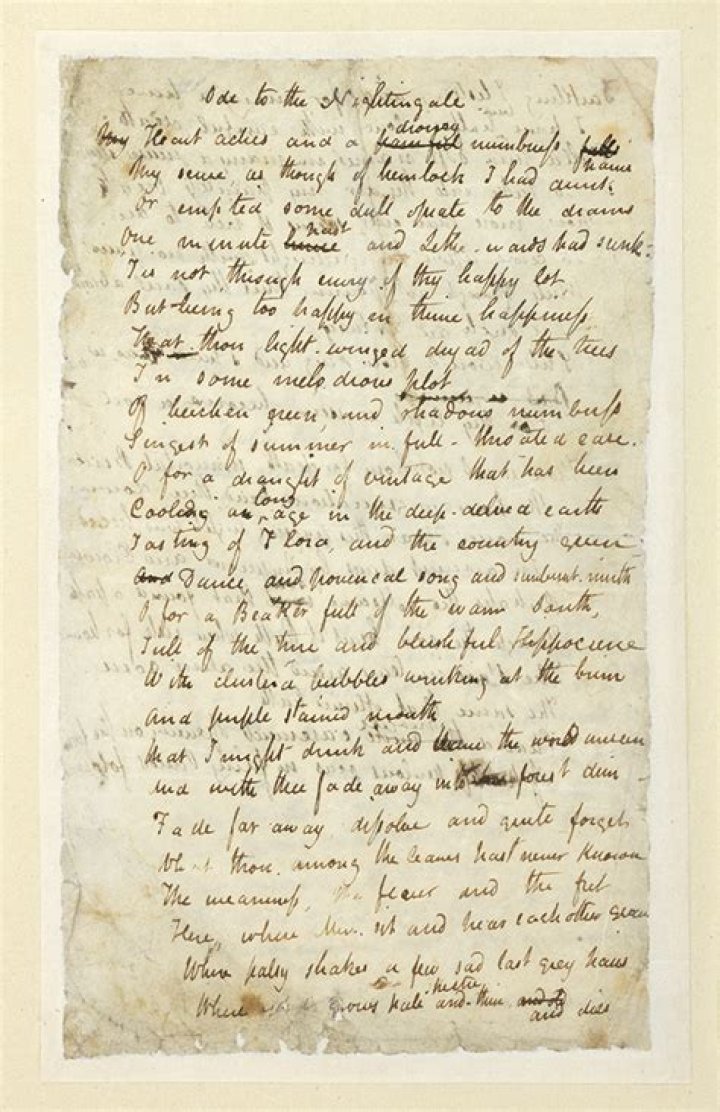 Ode to the Nightingale
My Heart aches and a drowsy painful numbness falls
My sense as though of hemlock I had drunk pains
Or emptied some dull opiate to the drains
One minute hence past and Lethe-wards had sunk-
Tis not through envy of thy happy lot
But-being too happy in thine happiness
That thou light-winged dryad of the trees
In some melodious plot
Of beechen green, and shadows numberless
Singest of summer in full-throated ease.
O for a draught of vintage that has been
Cooling an long age in the deep-delved earth
Tasting of Flora, and the country green
And Dance, and provencal song and sunburnt mirth
O for a Beaker full of the warm South,
Full of the true and blushful Hippocrene
With cluster'd bubbles winking at the brim
And purple stained mouth
that I might drink and leave the world unseen
And with thee fade away into the forest dim -
Fade far away dissolve and quite forget
What thou among the leaves hast never known
The weariness, the fever and the fret
Here, where Men sit and hear each other groan
Where palsy shakes a few sad last grey hairs
Where grows pale and thin and old and dies